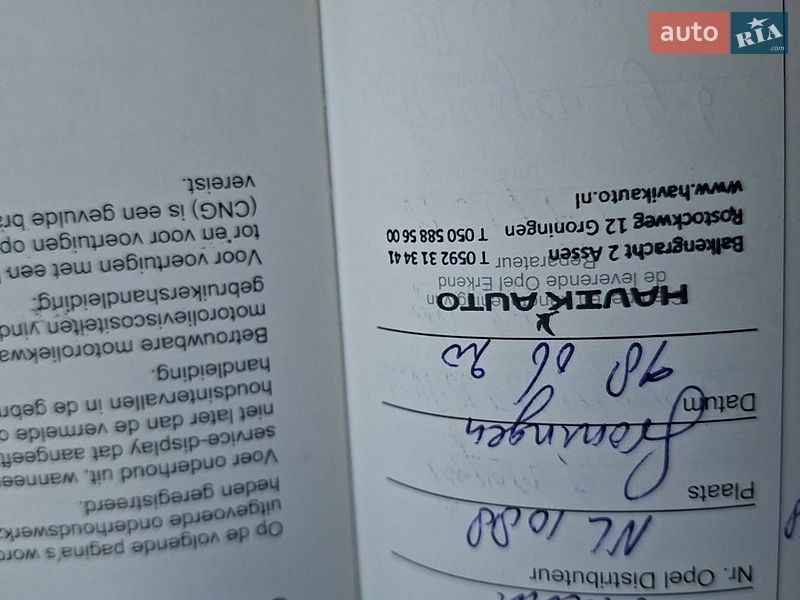 Nr. Opel Distributeur
NL 1088
Plaats
Groningen
Datum
18 06 20
HAVIKAUTO
de leverende Opel Erkend
Reparateur
Balkengracht 2 Assen T 0592 31 34 41
Rostockweg 12 Groningen T 050 588 56 00
www.havikauto.nl
Op de volgende pagina's
uitgevoerde
heden geregistreerd.
Voer onderhoud uit, wanneer
service-display dat aangeeft
niet later dan de vermelde
houdsintervallen in de
handleiding.
Betrouwbare
motorolieviscositeiten
gebruikershandleiding.
Voor voertuigen met een
tor en voor voertuigen op
(CNG) is een gevulde
vereist.
auto RIA
.com